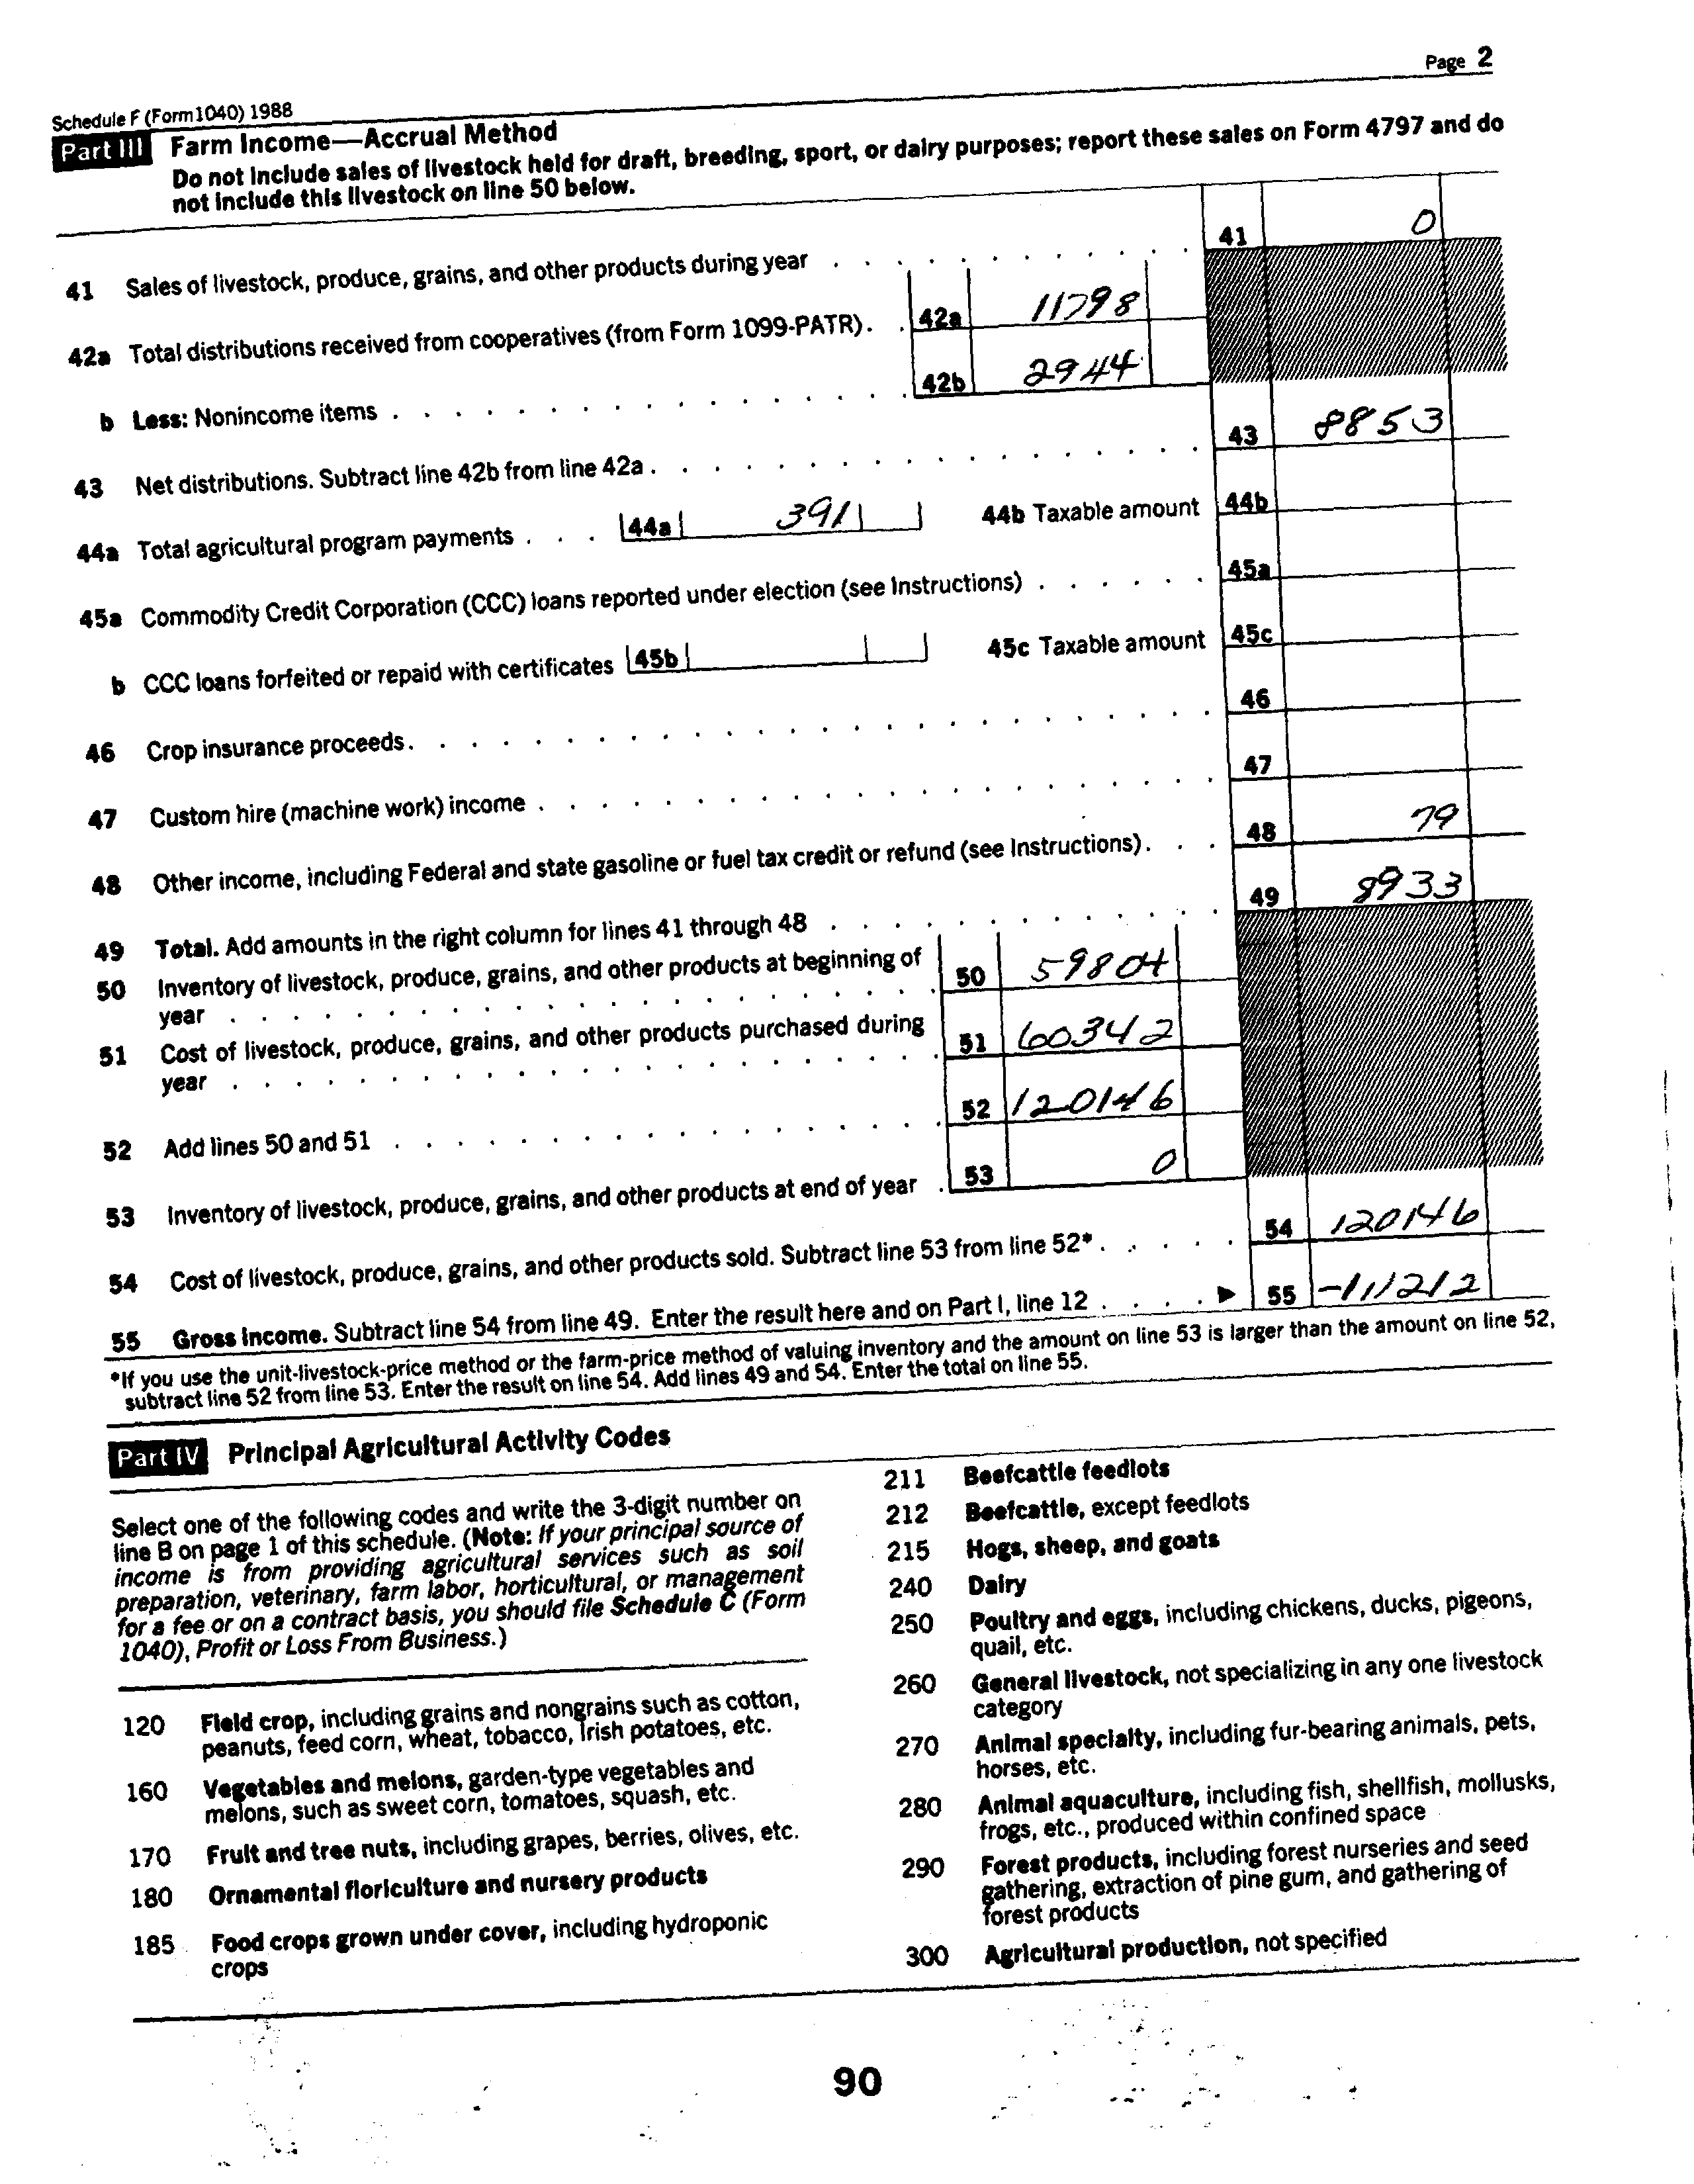 Page 2
Schedule F (Form 1040) 1988
Part III Farm Income—Accrual Method
Do not include sales of livestock held for draft, breeding, sport, or dairy purposes; report these sales on Form 4797 and do
not include this livestock on line 50 below.
41 Sales of livestock, produce, grains, and other products during year . . . . . . . . . . . . 41 0
42a Total distributions received from cooperatives (from Form 1099-PATR) . . 42a 11798
b Less: Nonincome items . . . . . . . . . . . . . . . . . 42b 2944
43 Net distributions. Subtract line 42b from line 42a . . . . . . . . . . . . . . . . . . 43 8853
44a Total agricultural program payments . . . 44a 391 44b Taxable amount 44b
45a Commodity Credit Corporation (CCC) loans reported under election (see Instructions) . . . . . . 45a
b CCC loans forfeited or repaid with certificates 45b 45c Taxable amount 45c
46 Crop insurance proceeds . . . . . . . . . . . . . . . . . . . . . . . . . . 46
47 Custom hire (machine work) income . . . . . . . . . . . . . . . . . . . . . . 47
48 Other income, including Federal and state gasoline or fuel tax credit or refund (see Instructions) . . . 48 79
49 Total. Add amounts in the right column for lines 41 through 48 . . . . . . . . . . . . . 49 8933
50 Inventory of livestock, produce, grains, and other products at beginning of
year . . . . . . . . . . . . . . . . . . . . . . . 50 59804
51 Cost of livestock, produce, grains, and other products purchased during
year . . . . . . . . . . . . . . . . . . . . . . . 51 60342
52 Add lines 50 and 51 . . . . . . . . . . . . . . . . . . 52 120146
53 Inventory of livestock, produce, grains, and other products at end of year . 53 0
54 Cost of livestock, produce, grains, and other products sold. Subtract line 53 from line 52* . . . . . 54 120146
55 Gross income. Subtract line 54 from line 49. Enter the result here and on Part I, line 12 . . . . ▶ 55 -111212
*If you use the unit-livestock-price method or the farm-price method of valuing inventory and the amount on line 53 is larger than the amount on line 52,
subtract line 52 from line 53. Enter the result on line 54. Add lines 49 and 54. Enter the total on line 55.
Part IV Principal Agricultural Activity Codes
Select one of the following codes and write the 3-digit number on
line B on page 1 of this schedule. (Note: If your principal source of
income is from providing agricultural services such as soil
preparation, veterinary, farm labor, horticultural, or management
for a fee or on a contract basis, you should file Schedule C (Form
1040), Profit or Loss From Business.)
120 Field crop, including grains and nongrains such as cotton,
peanuts, feed corn, wheat, tobacco, Irish potatoes, etc.
160 Vegetables and melons, garden-type vegetables and
melons, such as sweet corn, tomatoes, squash, etc.
170 Fruit and tree nuts, including grapes, berries, olives, etc.
180 Ornamental floriculture and nursery products
185 Food crops grown under cover, including hydroponic
crops
211 Beefcattle feedlots
212 Beefcattle, except feedlots
215 Hogs, sheep, and goats
240 Dairy
250 Poultry and eggs, including chickens, ducks, pigeons,
quail, etc.
260 General livestock, not specializing in any one livestock
category
270 Animal specialty, including fur-bearing animals, pets,
horses, etc.
280 Animal aquaculture, including fish, shellfish, mollusks,
frogs, etc., produced within confined space
290 Forest products, including forest nurseries and seed
gathering, extraction of pine gum, and gathering of
forest products
300 Agricultural production, not specified
90